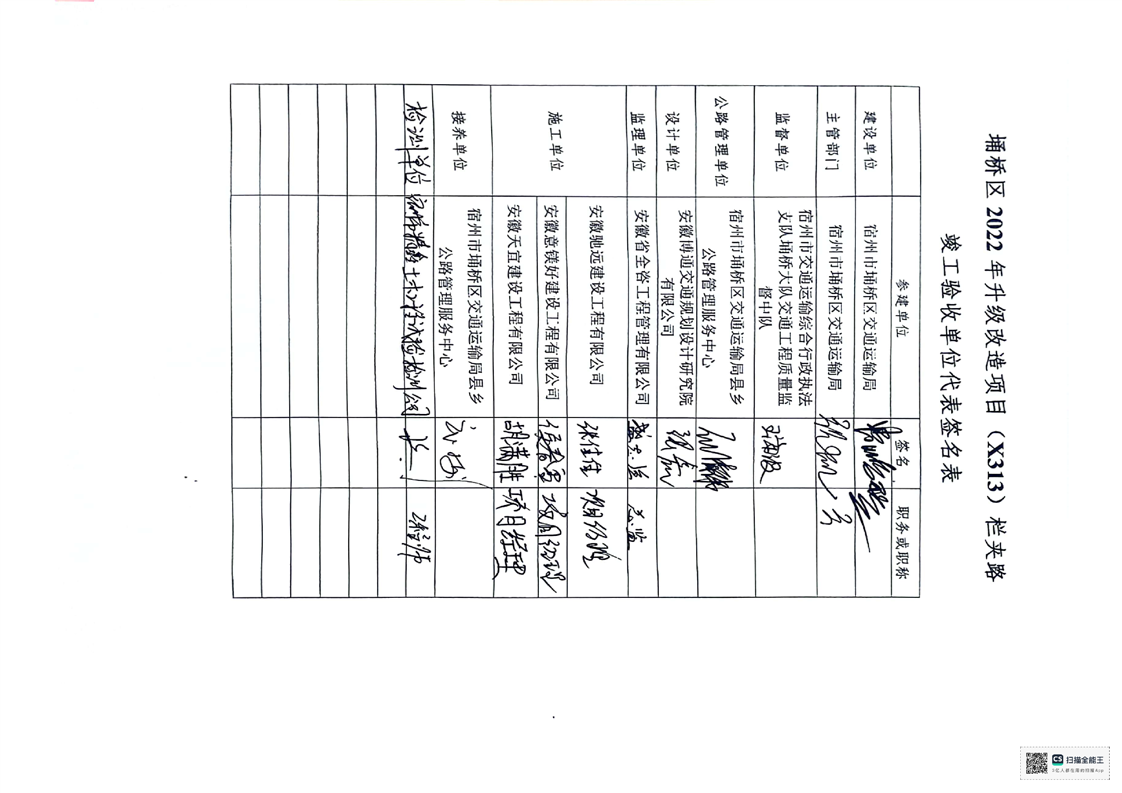 埇桥区 2022 年升级改造项目（X313）栏夹路
竣工验收单位代表签名表
参建单位 签名 职务或职称
建设单位 宿州市埇桥区交通运输局
主管部门 宿州市埇桥区交通运输局
监督单位 宿州市交通运输综合行政执法
支队埇桥大队交通工程质量监
督中队
公路管理单位 宿州市埇桥区交通运输局县乡
公路管理服务中心
设计单位 安徽博通交通规划设计研究院
有限公司
监理单位 安徽省全咨工程管理有限公司 总监
施工单位 安徽驰远建设工程有限公司 张佳佳 项目经理
安徽意镁好建设工程有限公司 项目经理
安徽天宜建设工程有限公司 胡满胜 项目经理
接养单位 宿州市埇桥区交通运输局县乡
公路管理服务中心
检测单位 土木工程试验检测公司 工程师
扫描全能王
3亿人都在用的扫描App